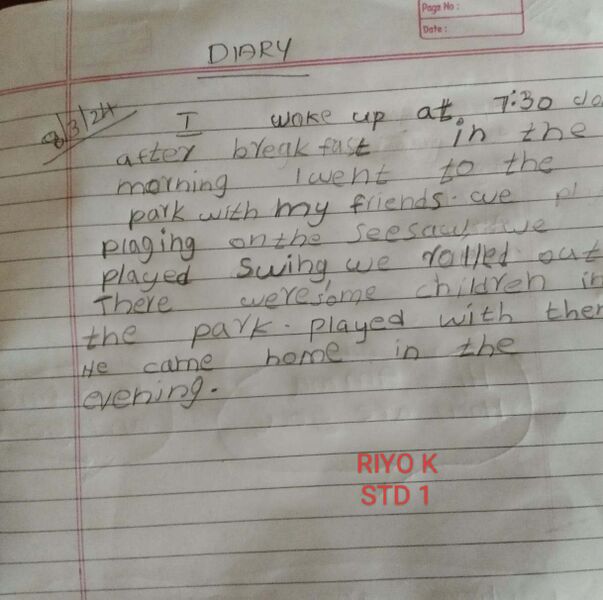 Page No :
Date :
DIARY
8/3/24
I woke up at 7:30
after breakfast in the
morning I went to the
park with my friends. we
plaging on the seesaw, we
played swing, we out
There were some children in
the park. played with
He came home in the
evening.
RIYO K
STD 1